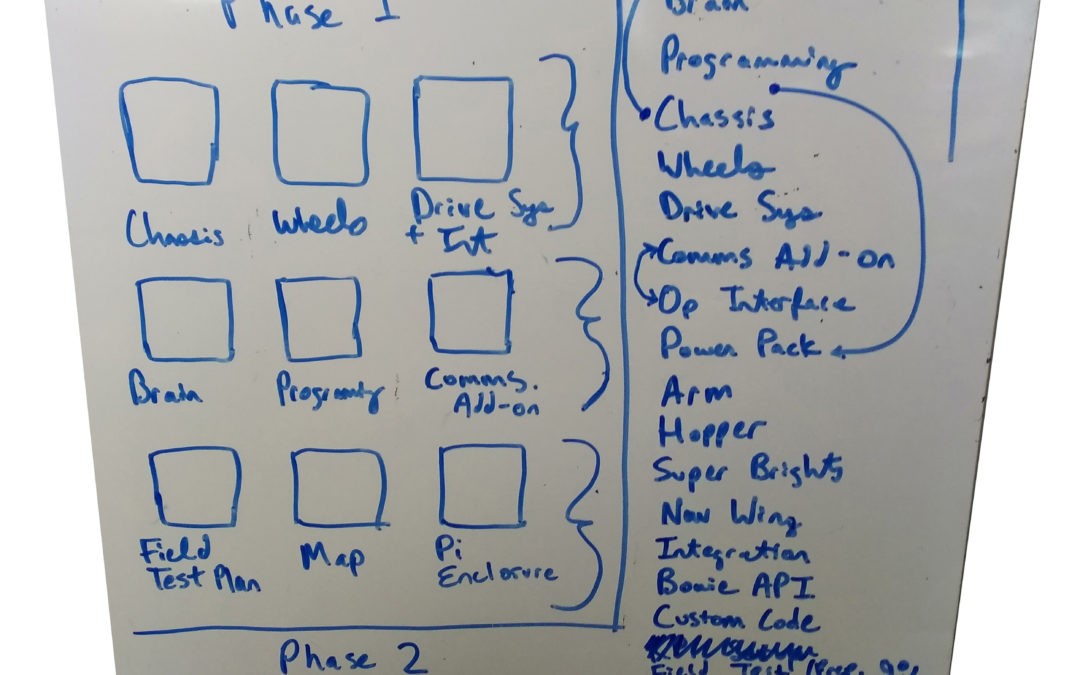 Phase 1
Chassis
Wheels
Drive Sys
+ Int
Brain
Programing
Comms.
Add-on
Field
Test Plan
Map
Pi
Enclosure
Phase 2
Brain
Programming
Chassis
Wheels
Drive Sys
Comms Add-on
Op Interface
Power Pack
Arm
Hopper
Super Brights
Nav Wing
Integration
Bowie API
Custom Code
Field Test